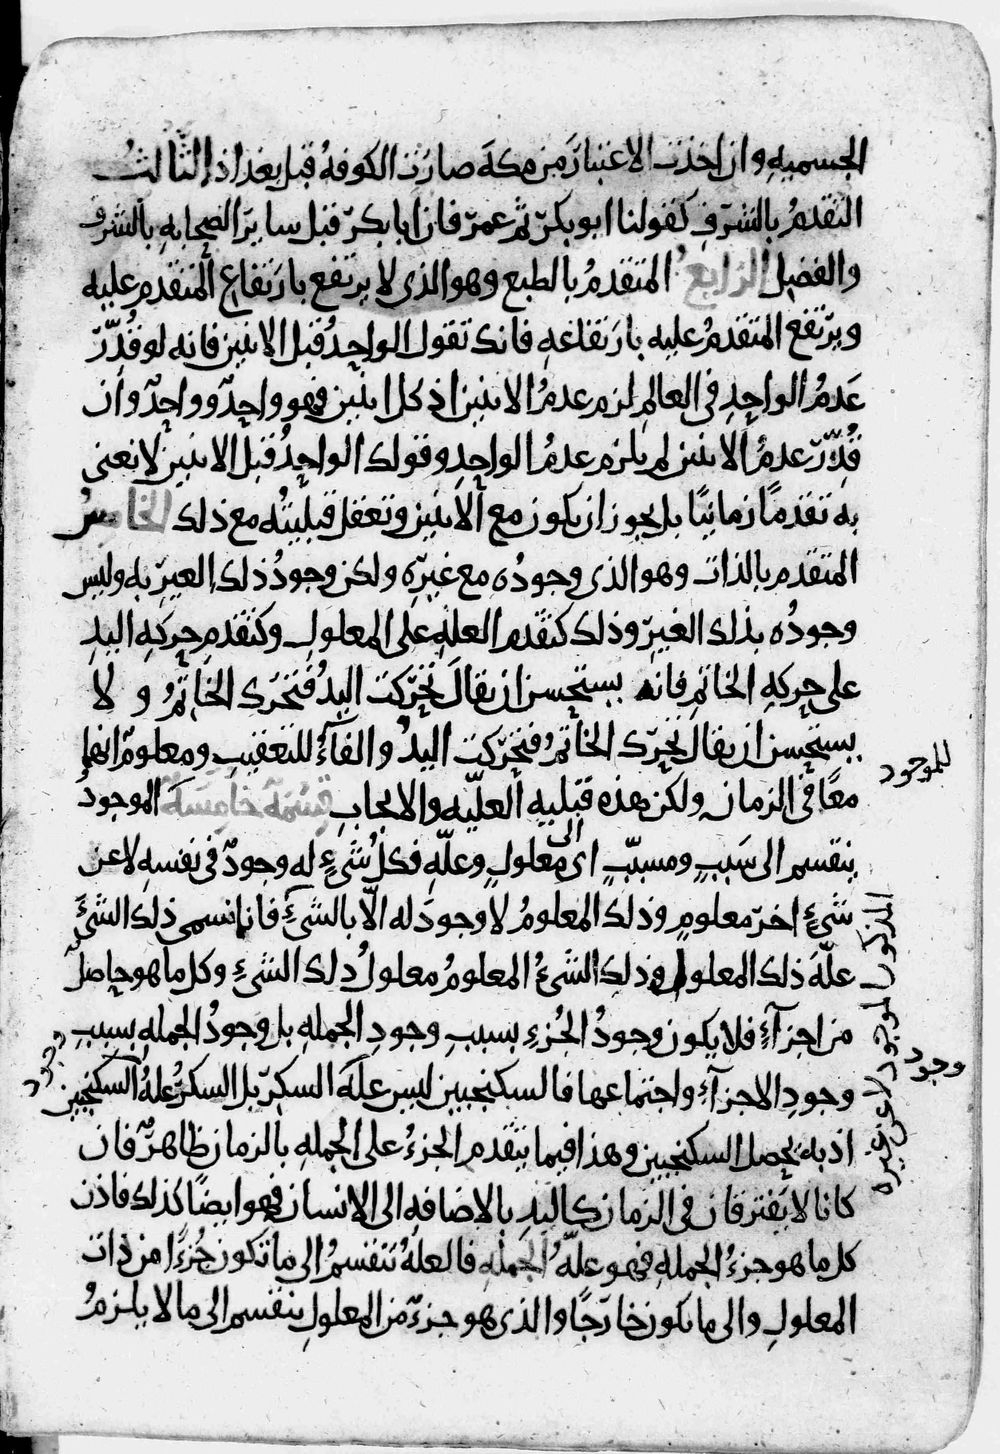 الجسميه وان اخذت الاعتبار من مكة صارت الكوفة قبل بغداد الثالث
التقدم بالشرف كقولنا ابو بكر ثم عمر فان ابا بكر قبل ساير الصحابه بالشرف
والفضل الرابع المتقدم بالطبع وهو الذى لا يرتفع بارتفاع المتقدم عليه
ويرتفع المتقدم عليه بارتفاعه فانك تقول الواحد قبل الاثنين فانه لو قدر
عدم الواحد فى العالم لزم عدم الاثنين اذ كل اثنين فهو واحد وواحد وان
قدر عدم الاثنين لم يلزم عدم الواحد وقولك الواحد قبل الاثنين لا نعنى
به تقدما زمانيا بل يجوز ان يكون مع الاثنين وتعقل قبليته مع ذلك الخامس
المتقدم بالذات وهو الذى وجوده مع غيره ولكن وجود ذلك الغير به وليس
وجوده بذلك الغير وذلك كتقدم العله على المعلول وكتقدم حركه اليد
على حركه الخاتم فانه يستحسن ان يقال تحركت اليد فتحرك الخاتم و لا
يستحسن ان يقال تحرك الخاتم فتحركت اليد والفآء للتعقيب ومعلوم انهما
معا فى الزمان ولكن هذه قبليه العليه والايجاب قسمة خامسة الموجود
للموجود
ينقسم الى سبب ومسبب اى الى معلول وعله فكل شىء له وجود فى نفسه لا عن
شىء اخر معلوم وذلك المعلوم لا وجود له الا بالشىء فانا نسمى ذلك الشىء
علة ذلك المعلول وذلك الشىء المعلوم معلول ذلك الشىء وكل ما هو حاصل
من اجزآء فلا يكون وجود الجزء بسبب وجود الجمله بل وجود الجمله بسبب
وجود الاجزآء واجتماعها فالسكنجبين ليس علة السكر بل السكر علة السكنجبين
وجود
وجود
اذ به يحصل السكنجبين وهذا فيما يتقدم الجزء على الجمله بالزمان ظاهر فان
كانا لا يفترقان فى الزمان كاليد بالاضافه الى الانسان فهو ايضا كذلك فاذن
كل ما هو جزء الجمله فهو علة الجمله فالعلة تنقسم الى ما تكون جزءا من ذات
المعلول والى ما يكون خارجا والذى هو جزء من المعلول ينقسم الى ما لا يلزم
المذكور الموجود لا عن غيره